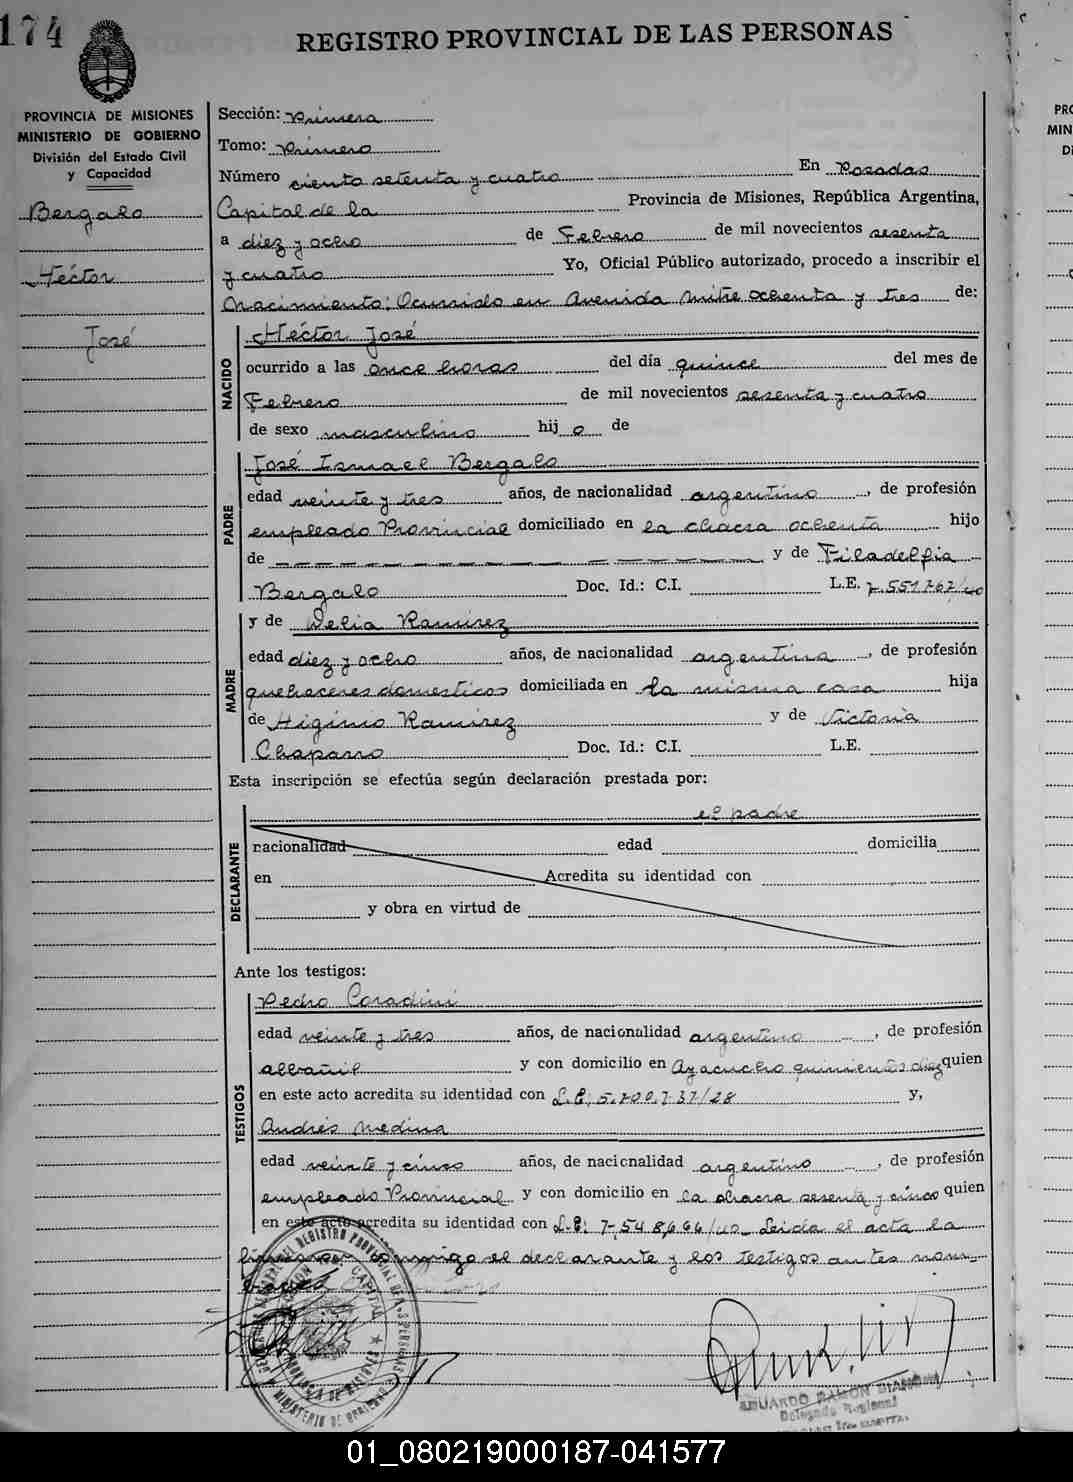 174
REGISTRO PROVINCIAL DE LAS PERSONAS
PROVINCIA DE MISIONES
MINISTERIO DE GOBIERNO
División del Estado Civil
y Capacidad
Bergalo
Héctor
José
Sección: Primera
Tomo: Primero
Número ciento setenta y cuatro En Posadas
Capital de la Provincia de Misiones, República Argentina,
a diez y ocho de Febrero de mil novecientos sesenta
y cuatro Yo, Oficial Público autorizado, procedo a inscribir el
nacimiento: Ocurrido en Avenida Mitre ochenta y tres de:
NACIDO
Héctor José
ocurrido a las once horas del día quince del mes de
Febrero de mil novecientos sesenta y cuatro
de sexo masculino hij o de
PADRE
José Ismael Bergalo
edad veinte y tres años, de nacionalidad argentino, de profesión
empleado Provincial domiciliado en la chacra ochenta hijo
de — — — — — — — — — — — — y de Filadelfia
Bergalo Doc. Id.: C.I. L.E. 7.551.767/40
MADRE
y de Delia Ramirez
edad diez y ocho años, de nacionalidad argentina, de profesión
quehaceres domesticos domiciliada en la misma casa hija
de Higinio Ramirez y de Victoria
Chaparro Doc. Id.: C.I. L.E.
Esta inscripción se efectúa según declaración prestada por:
DECLARANTE
el padre
nacionalidad edad domicilia
en Acredita su identidad con
y obra en virtud de
Ante los testigos:
TESTIGOS
Pedro Coradini
edad veinte y tres años, de nacionalidad argentino, de profesión
albañil y con domicilio en Ayacucho quinientos diez quien
en este acto acredita su identidad con L.E: 5.700.737/28 y,
Andrés Medina
edad veinte y cinco años, de nacionalidad argentino, de profesión
empleado Provincial y con domicilio en la chacra sesenta y cinco quien
en este acto acredita su identidad con L.E: 7.548.666/40 Leida el acta la
firmaron conmigo el declarante y los testigos antes nom-
brados
EDUARDO RAMON
Delegado Regional
01_080219000187-041577